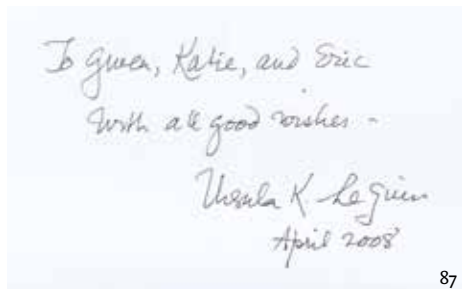 To Gwen, Katie, and Eric
With all good wishes -
Ursula K Le Guin
April 2008
87